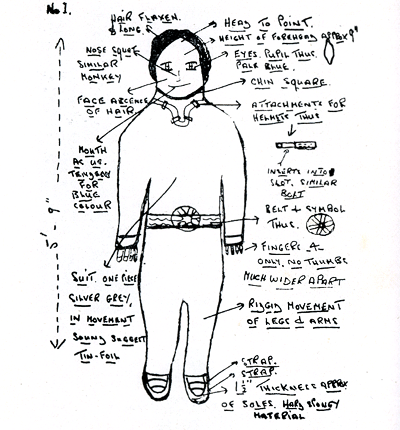 No 1.
HAIR FLAXEN.
& LONG.
NOSE SQUET
SIMILAR
MONKEY
FACE ABCENCE
OF HAIR
MOUTH
AS US.
TENDENCY
FOR
BLUE
COLOUR
5'- 9"
SUIT. ONE PIECE
SILVER GREY,
IN MOVEMENT
SOUND SUGGEST
TIN-FOIL
HEAD TO POINT.
HEIGHT OF FOREHEAD APPROX 9"
EYES. PUPIL THUS.
PALE BLUE.
CHIN SQUARE.
ATTACHMENTS FOR
HELMETS THUS
INSERTS INTO
SLOT. SIMILAR
BOLT
BELT & SYMBOL
THUS.
FINGERS 4
ONLY. NO THUMBS
MUCH WIDER APART
RIGID MOVEMENT
OF LEGS & ARMS
STRAP.
STRAP.
1½" THICKNESS APPROX
OF SOLES. HARD SPONGY
MATERIAL